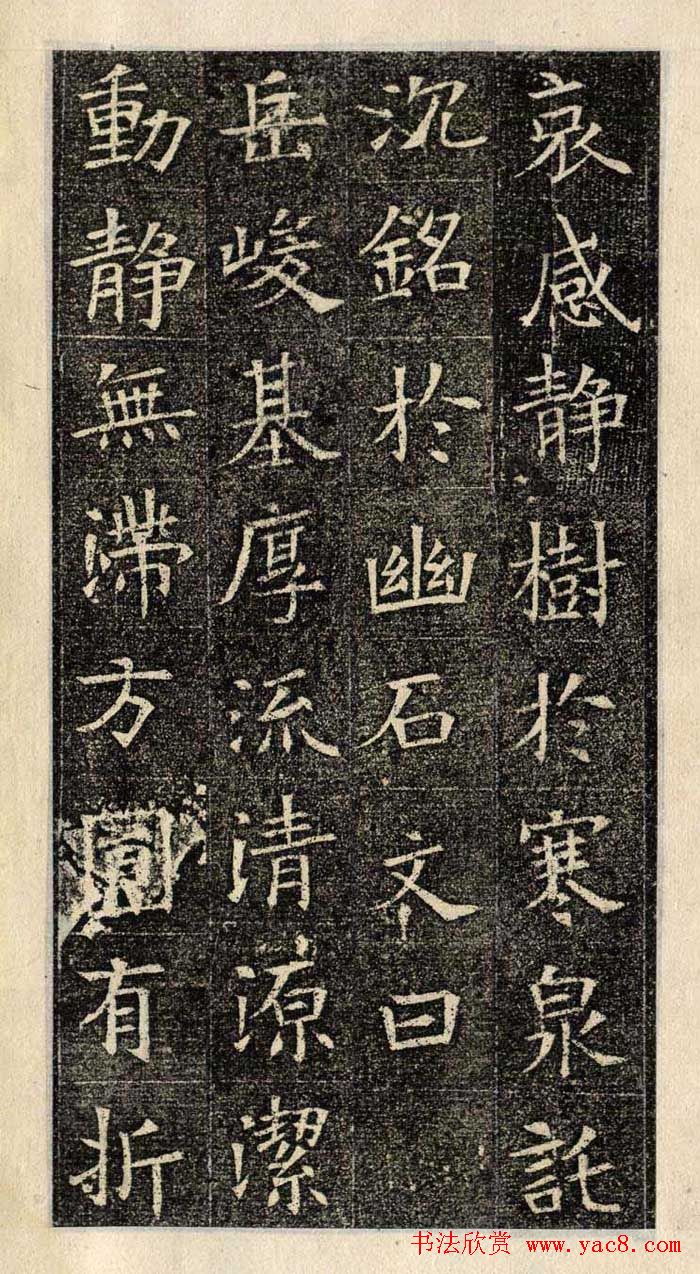 哀感静樹於寒泉託
沉銘於幽石文曰
岳峻基厚流清源潔
動静無滞方圓有折
书法欣赏 www.yac8.com